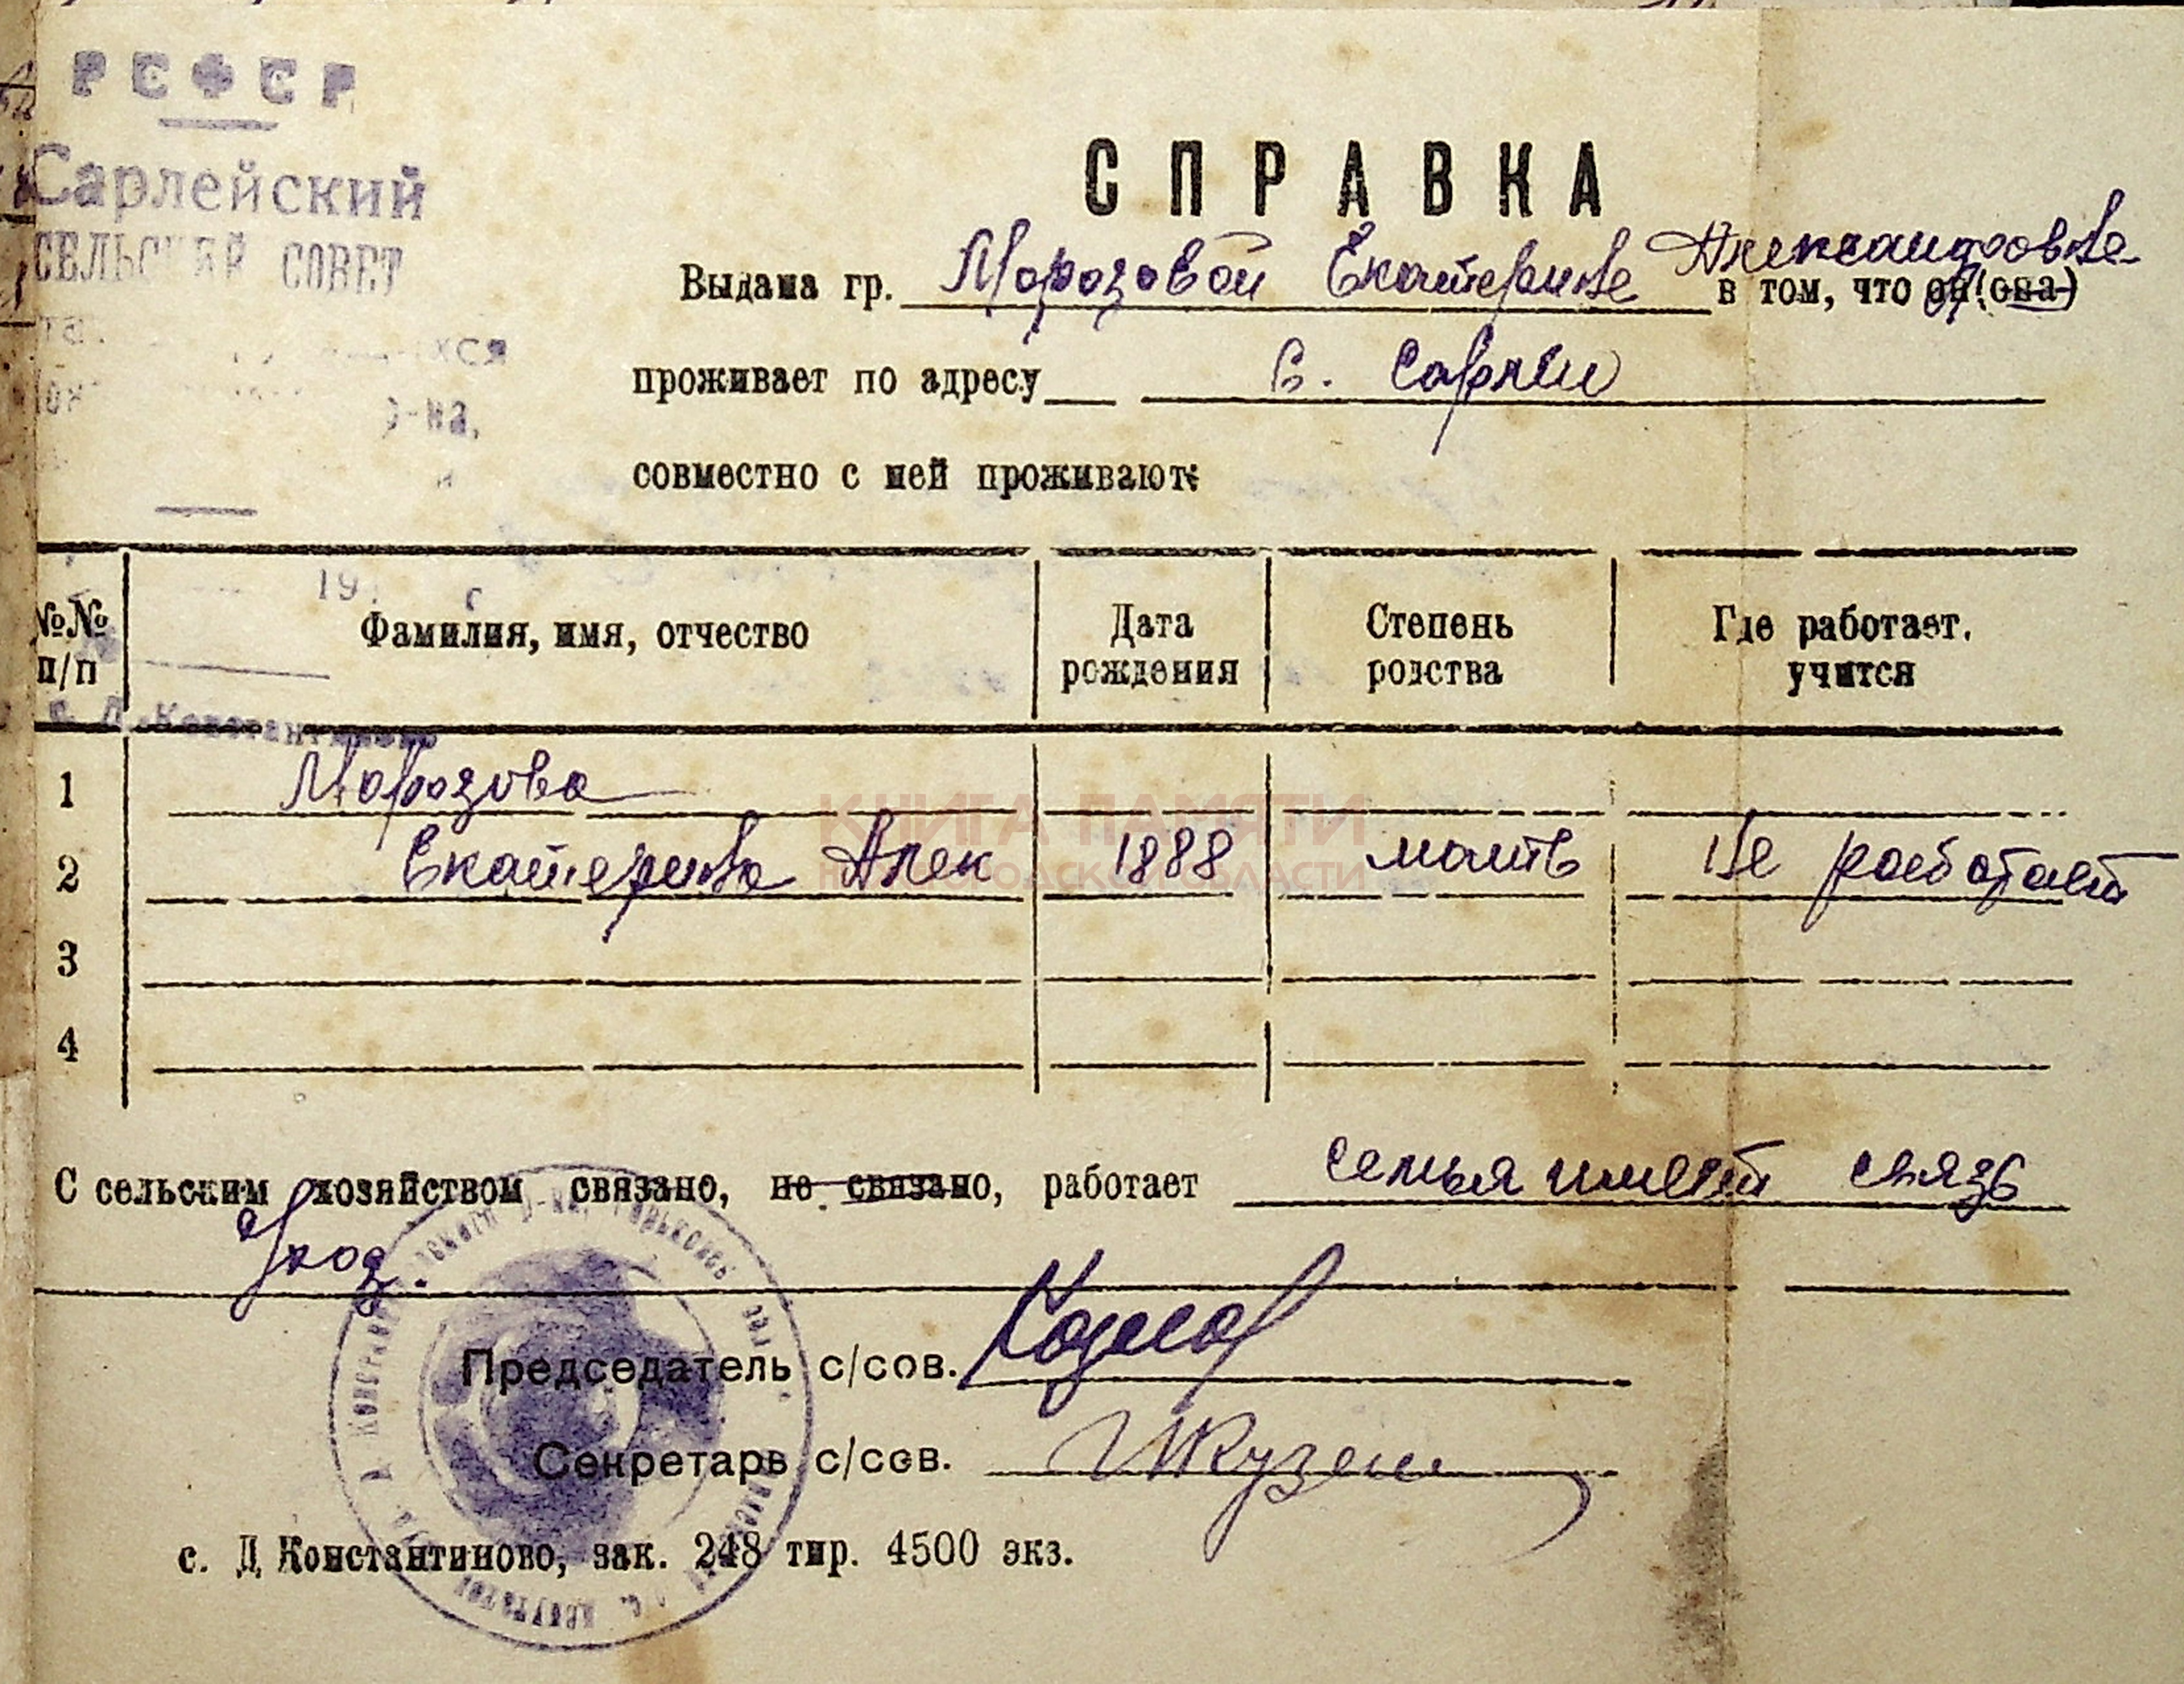 РСФСР
Сарлейский
СЕЛЬСКИЙ СОВЕТ
р-на,
СПРАВКА
Выдана гр. Морозовой Екатерине Александровне в том, что он (она)
проживает по адресу с. Сарлеи
совместно с ней проживают:
19 г
№№ п/п
Фамилия, имя, отчество
Дата рождения
Степень родства
Где работает, учится
с. Д.Константиново
1 Морозова
2 Екатерина Алек 1888 мать Не работает
3
4
КНИГА ПАМЯТИ
НИЖЕГОРОДСКОЙ ОБЛАСТИ
С сельским хозяйством связано, не связано, работает семья имеет связь
Председатель с/сов.
Секретарь с/сов.
с. Д Константиново, зак. 248 тир. 4500 экз.